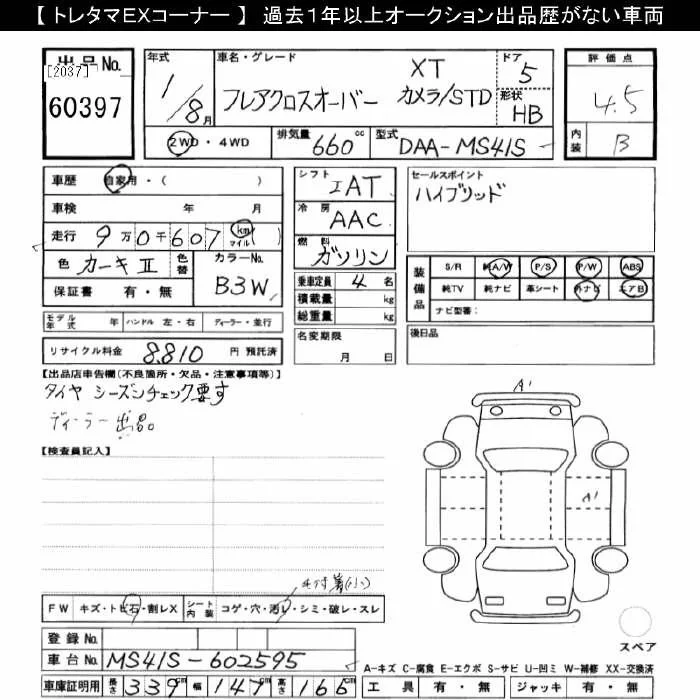 【 トレタマEXコーナー 】 過去1年以上オークション出品歴がない車両
出品No.
[2037]
60397
年式
1/8月
車名・グレード
XT
フレアクロスオーバー カメラ/STD
ドア
5
形状
HB
評価点
4.5
内装
B
2WD・4WD
排気量 660 cc
型式 DAA-MS41S
車歴 自家用・( )
車検 年 月
走行 9万0千607 km マイル ( )
色 カーキⅡ 色替
カラーNo.
B3W
保証書 有・無
モデル年式 年 ハンドル 左・右 ディーラー・並行
リサイクル料金 8,810 円 預託済
シフト
IAT
冷房
AAC
燃料
ガソリン
乗車定員 4 名
積載量 kg
総重量 kg
名変期限
月 日
セールスポイント
ハイブリッド
装備品
S/R 純A/W P/S P/W ABS
純TV 純ナビ 革シート 外ナビ エアB
ナビ型番:
後日品
【出品店申告欄(不良箇所・欠品・注意事項等)】
タイヤ シーズンチェック要す
ディーラー出品。
【検査員記入】
(小)
FW キズ・トビ石・割レX
シート内装 コゲ・穴・汚レ・シミ・破レ・スレ
登録No.
車台No. MS41S-602595
車庫証明用 長さ 339 cm 幅 147 cm 高さ 166 cm
A1
A1
スペア
A-キズ C-腐食 E-エクボ S-サビ U-凹ミ W-補修 XX-交換済
工具 有・無 ジャッキ 有・無